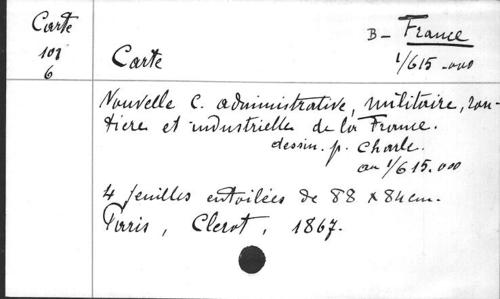 Carte
B - France
103
6
Carte
1/615.000
Nouvelle C. administrative, militaire, rou-
tiere et industrielle de la France.
dessin. p. Charle.
au 1/615.000
4 feuilles entoilées de 88 x 84 cm.
Paris, Clerot, 1867.